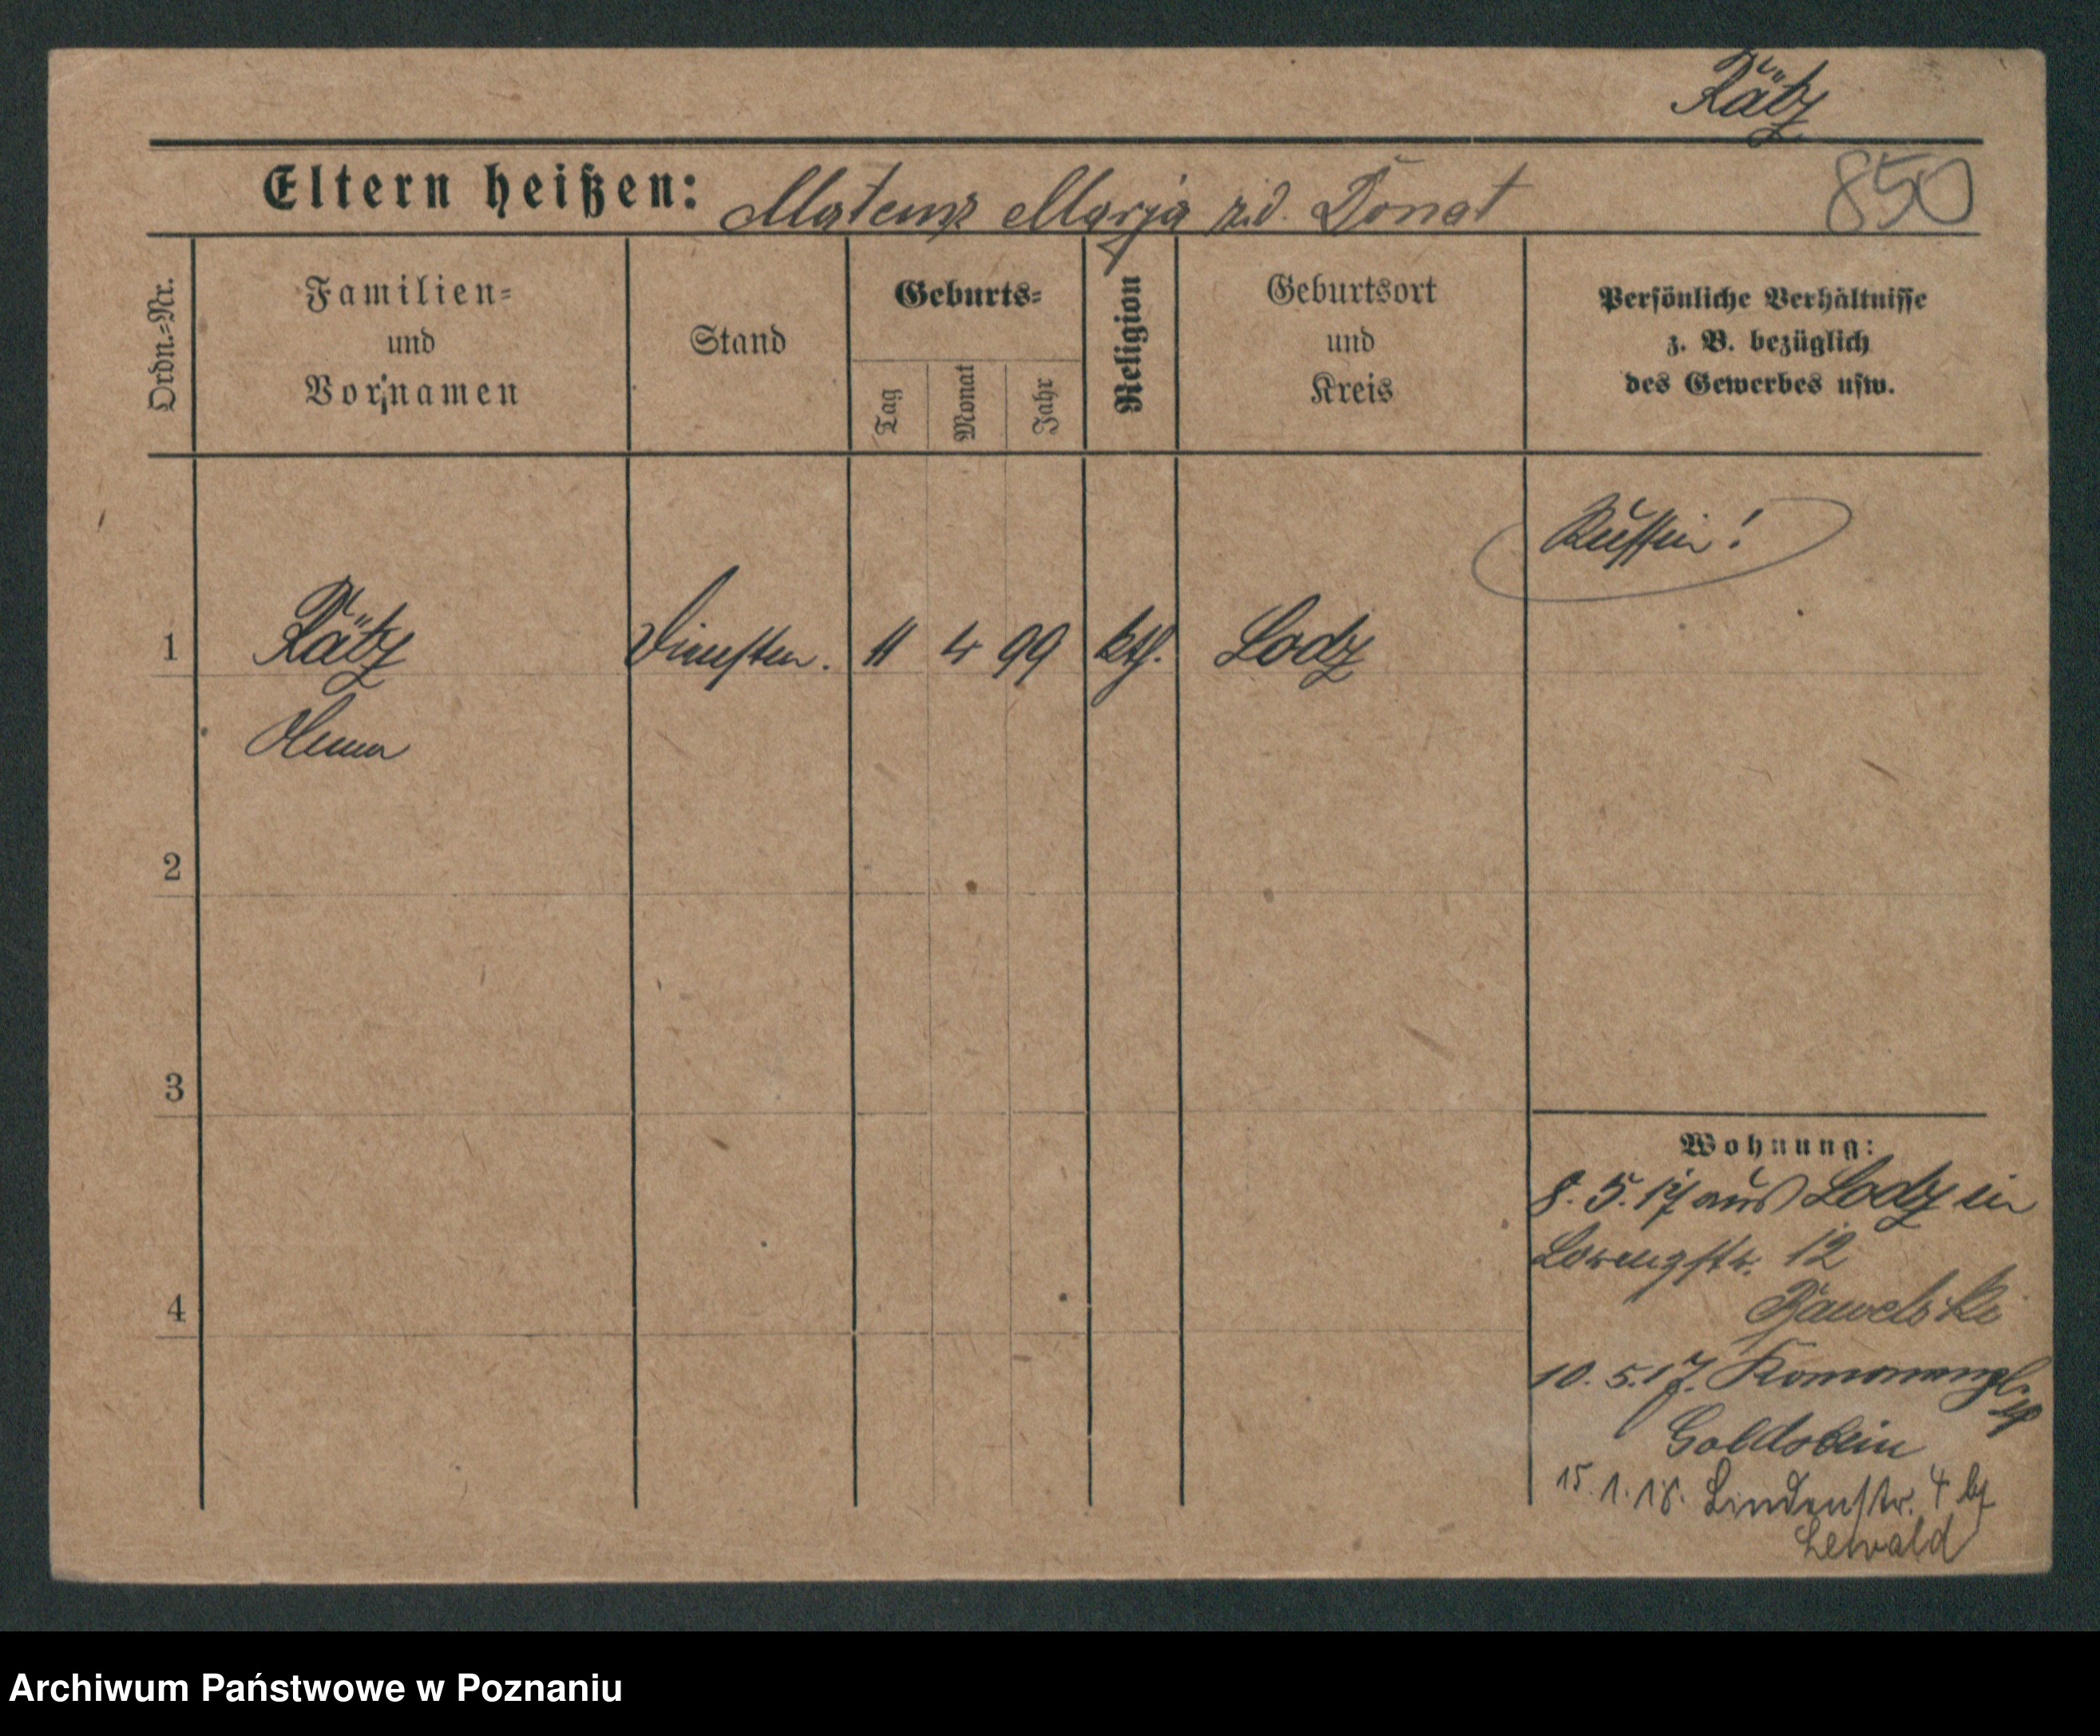 Rätz
Eltern heißen: Mateusz Marja zd. Donat
850
Ordn.-Nr.
Familien-
und
Vornamen
Stand
Geburts-
Tag
Monat
Jahr
Religion
Geburtsort
und
Kreis
Persönliche Verhältnisse
z. B. bezüglich
des Gewerbes usw.
Russin!
1 Rätz 11 4 99 kth. Lodz
2
3
4
Wohnung:
8. 5. 17 aus Lodz in
Lorenzstr. 12
Pawelski
10. 5. 17.
Goldstein
15. 1. 18. Lindenstr. 4 by
Lewald
Archiwum Państwowe w Poznaniu